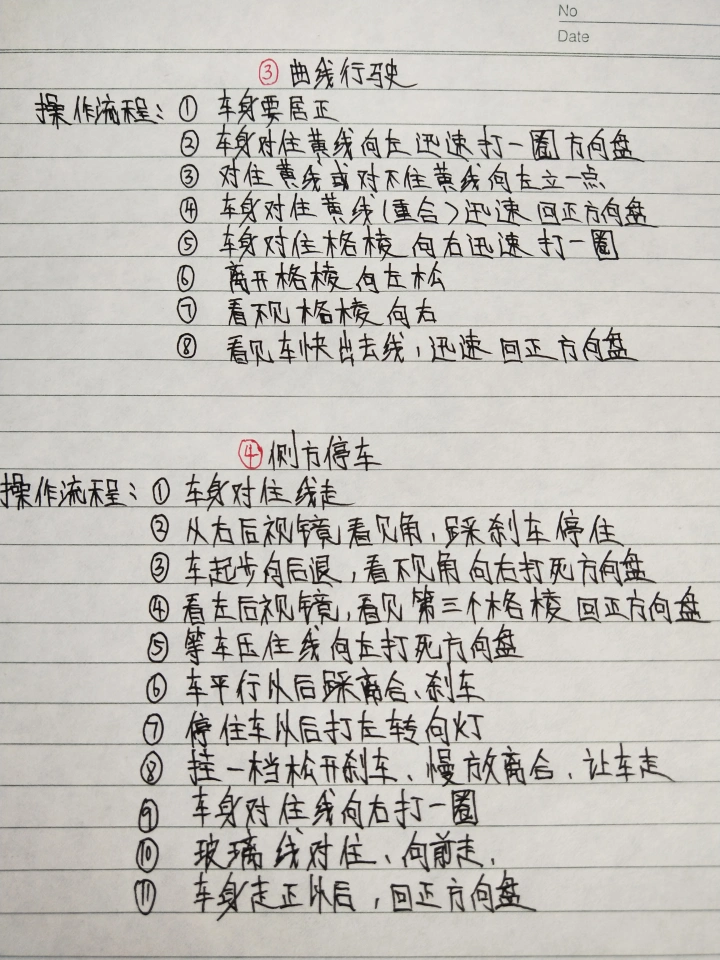 No
Date
③ 曲线行驶
操作流程：① 车身要居正
② 车身对住黄线向左迅速打一圈方向盘
③ 对住黄线或对不住黄线向左立一点
④ 车身对住黄线(重合)迅速回正方向盘
⑤ 车身对住格棱向右迅速打一圈
⑥ 离开格棱向左松
⑦ 看不见格棱向右
⑧ 看见车快出去线，迅速回正方向盘
④ 侧方停车
操作流程：① 车身对住线走
② 从右后视镜看见角，踩刹车停住
③ 车起步向后退，看不见角向右打死方向盘
④ 看左后视镜，看见第三个格棱回正方向盘
⑤ 等车压住线向左打死方向盘
⑥ 车平行以后踩离合、刹车
⑦ 停住车以后打左转向灯
⑧ 挂一档松开刹车、慢放离合、让车走
⑨ 车身对住线向右打一圈
⑩ 玻璃线对住、向前走、
⑪ 车身走正以后，回正方向盘